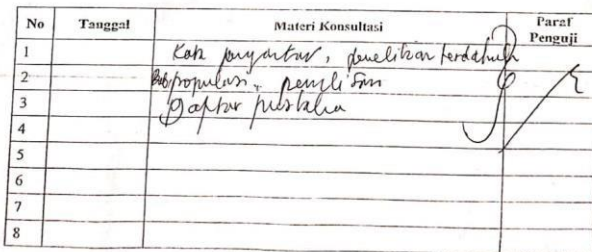 No Tanggal Materi Konsultasi Paraf Penguji
1 Kata pengantar, penelitian terdahulu
2 populasi, penulisan
3 Daftar pustaka
4
5
6
7
8